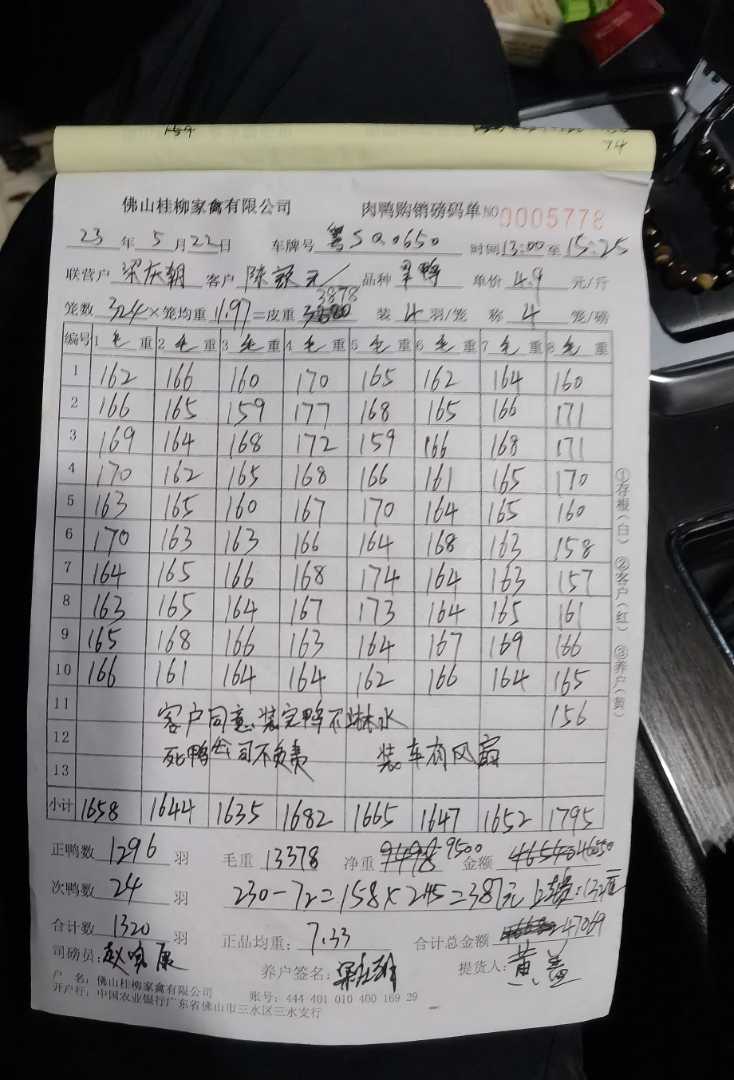 159
74
佛山桂柳家禽有限公司 肉鸭购销磅码单 NO 0005778
23 年 5 月 22 日 车牌号 粤S0.0650 时间 13:00 至 15:25
联营户 梁庆朝 客户 陈 品种 鸭 单价 4.9 元/斤
笼数 324 × 笼均重 11.97 = 皮重 3878 装 4 羽/笼 称 4 笼/磅
编号 1 毛 重 2 毛 重 3 毛 重 4 毛 重 5 毛 重 6 毛 重 7 毛 重 8 毛 重
1 162 166 160 170 165 162 164 160
2 166 165 159 177 168 165 166 171
3 169 164 168 172 159 166 168 171
4 170 162 165 168 166 161 165 170
5 163 165 160 167 170 164 165 160
6 170 163 163 166 164 168 163 158
7 164 165 166 168 174 164 163 157
8 163 165 164 167 173 164 165 161
9 165 168 166 163 164 167 169 166
10 166 161 164 164 162 166 164 165
11 客户同意装完鸭不淋水 156
12 死鸭公司不负责 装车有风扇
13
小计 1658 1644 1635 1682 1665 1647 1652 1795
正鸭数 1296 羽 毛重 13378 净重 9500 金额 46550
次鸭数 24 羽 230-72=158×2.45=387元
合计数 1320 羽 正品均重: 7.33 合计总金额 47069
司磅员: 赵 康 养户签名: 提货人: 黄
户 名: 佛山桂柳家禽有限公司 账号: 444 401 010 400 169 29
开户行: 中国农业银行广东省佛山市三水区三水支行
①存根(白) ②客户(红) ③养户(黄)